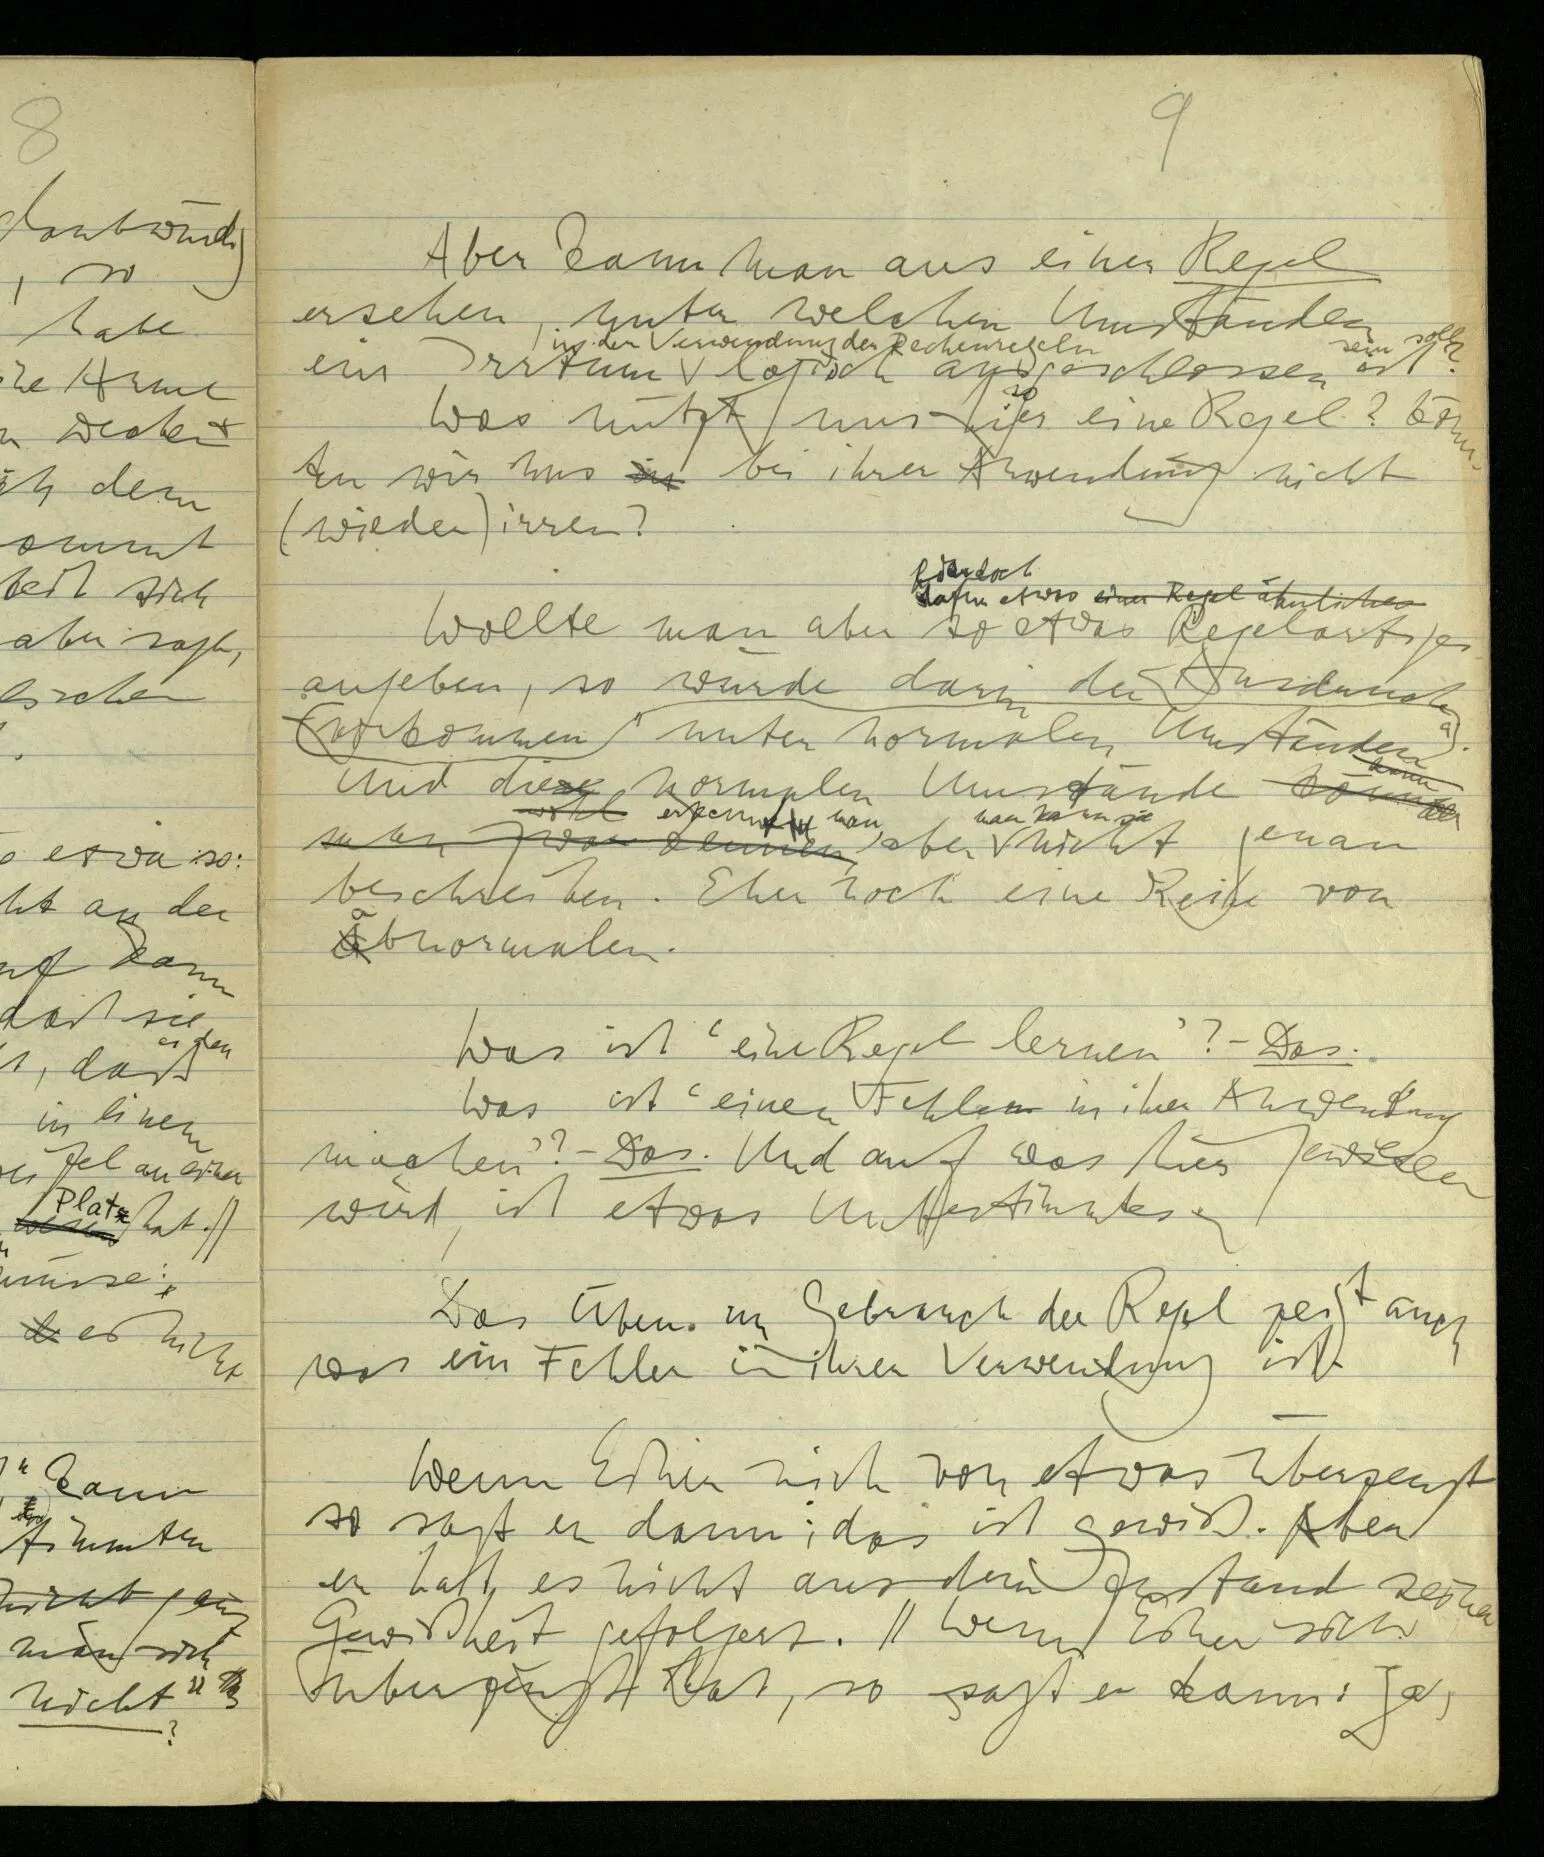 8
glaubwürdig
, so
habe
Arme
dem
kommt
teilt sich
aber sagt,
o etwa so:
ht an der
uf kann
daß sie
es den
, daß
in einem
fel an einer
Platz
hat.//
müsse:
es nicht
kann
stimmten
nicht ganz
man sich
nicht"
?
9
Aber kann man aus einer Regel
ersehen, unter welchen Umständen
in der Verwendung der Rechenregeln sein soll?
ein Irrtum logisch ausgeschlossen ist?
so
Was nützt uns hier eine Regel? Könn-
ten wir uns in bei ihrer Anwendung nicht
(wieder) irren?
hier doch
dafür etwas einer Regel ähnliches
Wollte man aber so etwas Regelartiges
angeben, so würde darin der Ausdruck
(vorkommen) "unter normalen Umständen".
kann
Und die normalen Umstände können
wohl erkennt man man kann sie
man zwar kennen, aber nicht genau
beschreiben. Eher noch eine Reihe von
a
abnormalen.
Was ist 'eine Regel lernen'? – Das.
Was ist 'einen Fehler in ihrer Anwendung
machen'? – Das. Und auf was hier gewiesen
wird, ist etwas Unbestimmtes.
Das Üben im Gebrauch der Regel zeigt auch,
was ein Fehler in ihrer Verwendung ist.
Wenn Einer sich von etwas überzeugt
so sagt er dann: das ist gewiß. Aber
er hat es nicht aus dem Zustand seiner
Gewißheit gefolgert. // Wenn Einer sich
überzeugt hat, so sagt er dann: Ja,